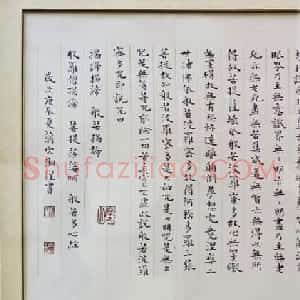 眼界乃至無意識界無無明亦無無明盡乃至無老
死亦無老死盡無苦集滅道無智亦無得以無所
得故菩提薩埵依般若波羅蜜多故心無罣礙
無罣礙故無有恐怖遠離顛倒夢想究竟涅槃三
世諸佛依般若波羅蜜多故得阿耨多羅三藐
菩提故知般若波羅蜜多是大神咒是大明咒是無上
咒是無等等咒能除一切苦真實不虛故說般若波羅
蜜多咒即說咒曰
揭諦揭諦 般若揭諦
般羅僧揭諦 菩提薩婆訶 般若多心經
歲次庚辰夏 書
Shufaziliao.com